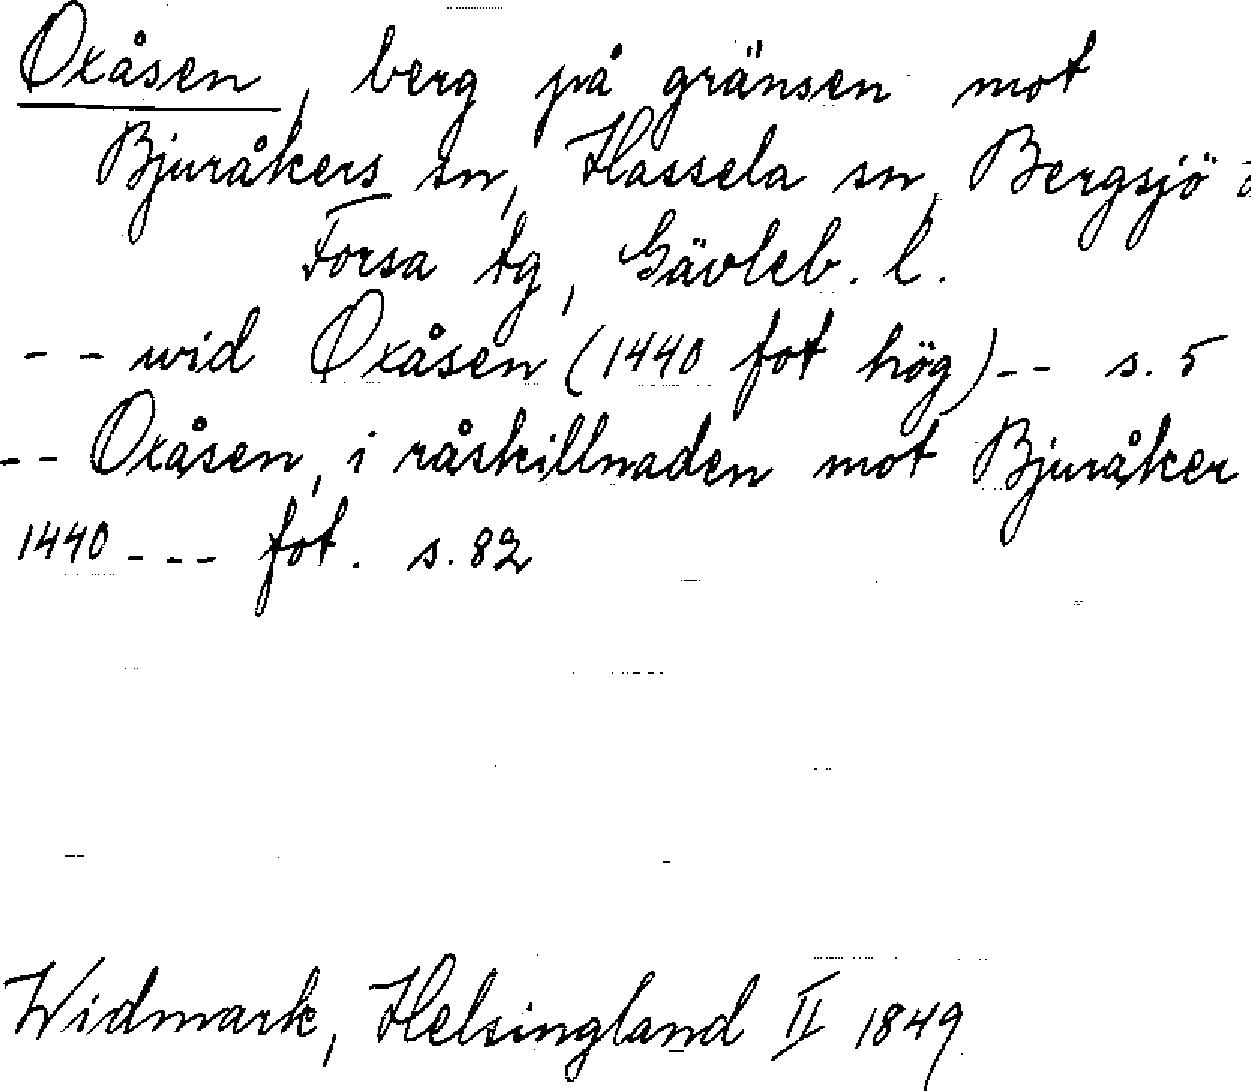 Oxåsen, berg på gränsen mot
Bjuråkers sn, Hassela sn, Bergsjö
Forsa tg, Gävleb. l.
-- wid Oxåsen (1440 fot hög)-- s. 5
-- Oxåsen, i råskillnaden mot Bjuråker
1440 --- fot. s. 82
Widmark, Helsingland II 1849